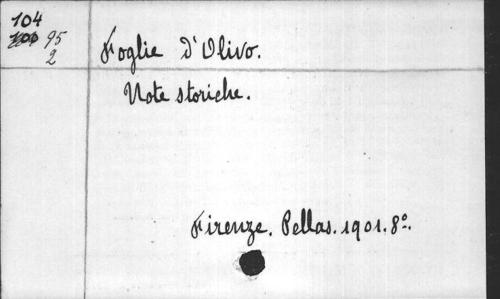 104
100 95
2
Foglie d'Olivo.
Note storiche.
Firenze. Pellas. 1901. 8º.